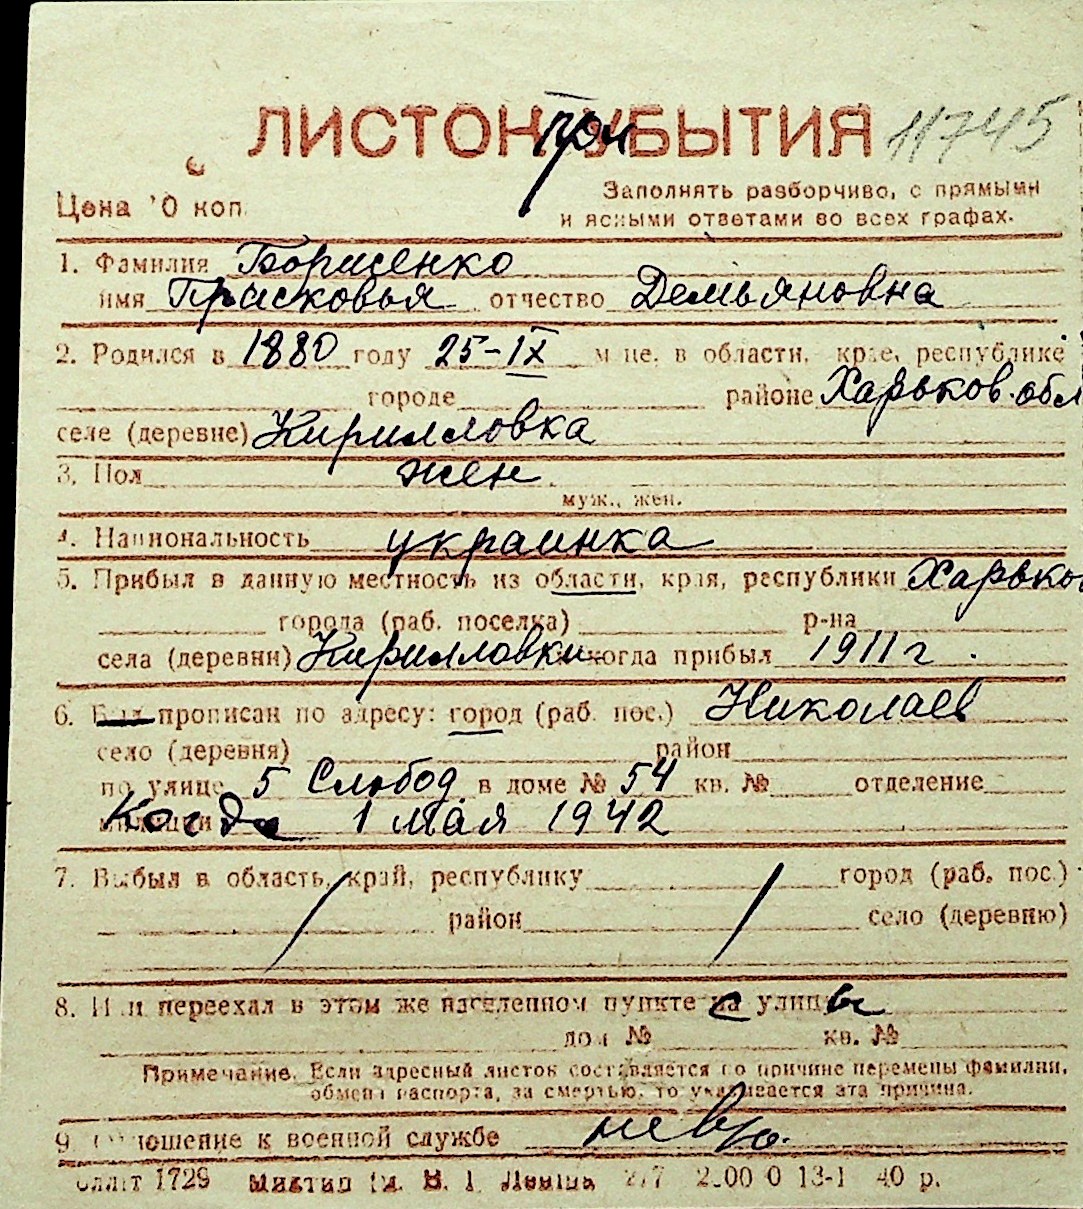 ЛИСТОК при БЫТИЯ 11745
Цена 10 коп.
Заполнять разборчиво, с прямыми
и ясными ответами во всех графах.
1. Фамилия Борисенко
имя Прасковья отчество Демьяновна
2. Родился в 1880 году 25-IX м-це, в области, крае, республике
городе районе Харьков. обл
селе (деревне) Кирилловка
3. Пол жен.
муж., жен.
4. Национальность украинка
5. Прибыл в данную местность из области, края, республики Харьков
города (раб. поселка) р-на
села (деревни) Кирилловки когда прибыл 1911 г.
6. Был прописан по адресу: город (раб. пос.) Николаев
село (деревня) район
по улице 5 Слобод. в доме № 54 кв. № отделение
милиции Когда 1 мая 1942
7. Выбыл в область, край, республику город (раб. пос.)
район село (деревню)
8. Или переехал в этом же населенном пункте с улицы
дом № кв. №
Примечание. Если адресный листок составляется по причине перемены фамилии,
обмена паспорта, за смертью, то указывается эта причина.
9. Отношение к военной службе не в/о.
1729 В. І. Леніна 2/7 13-1 40 р.